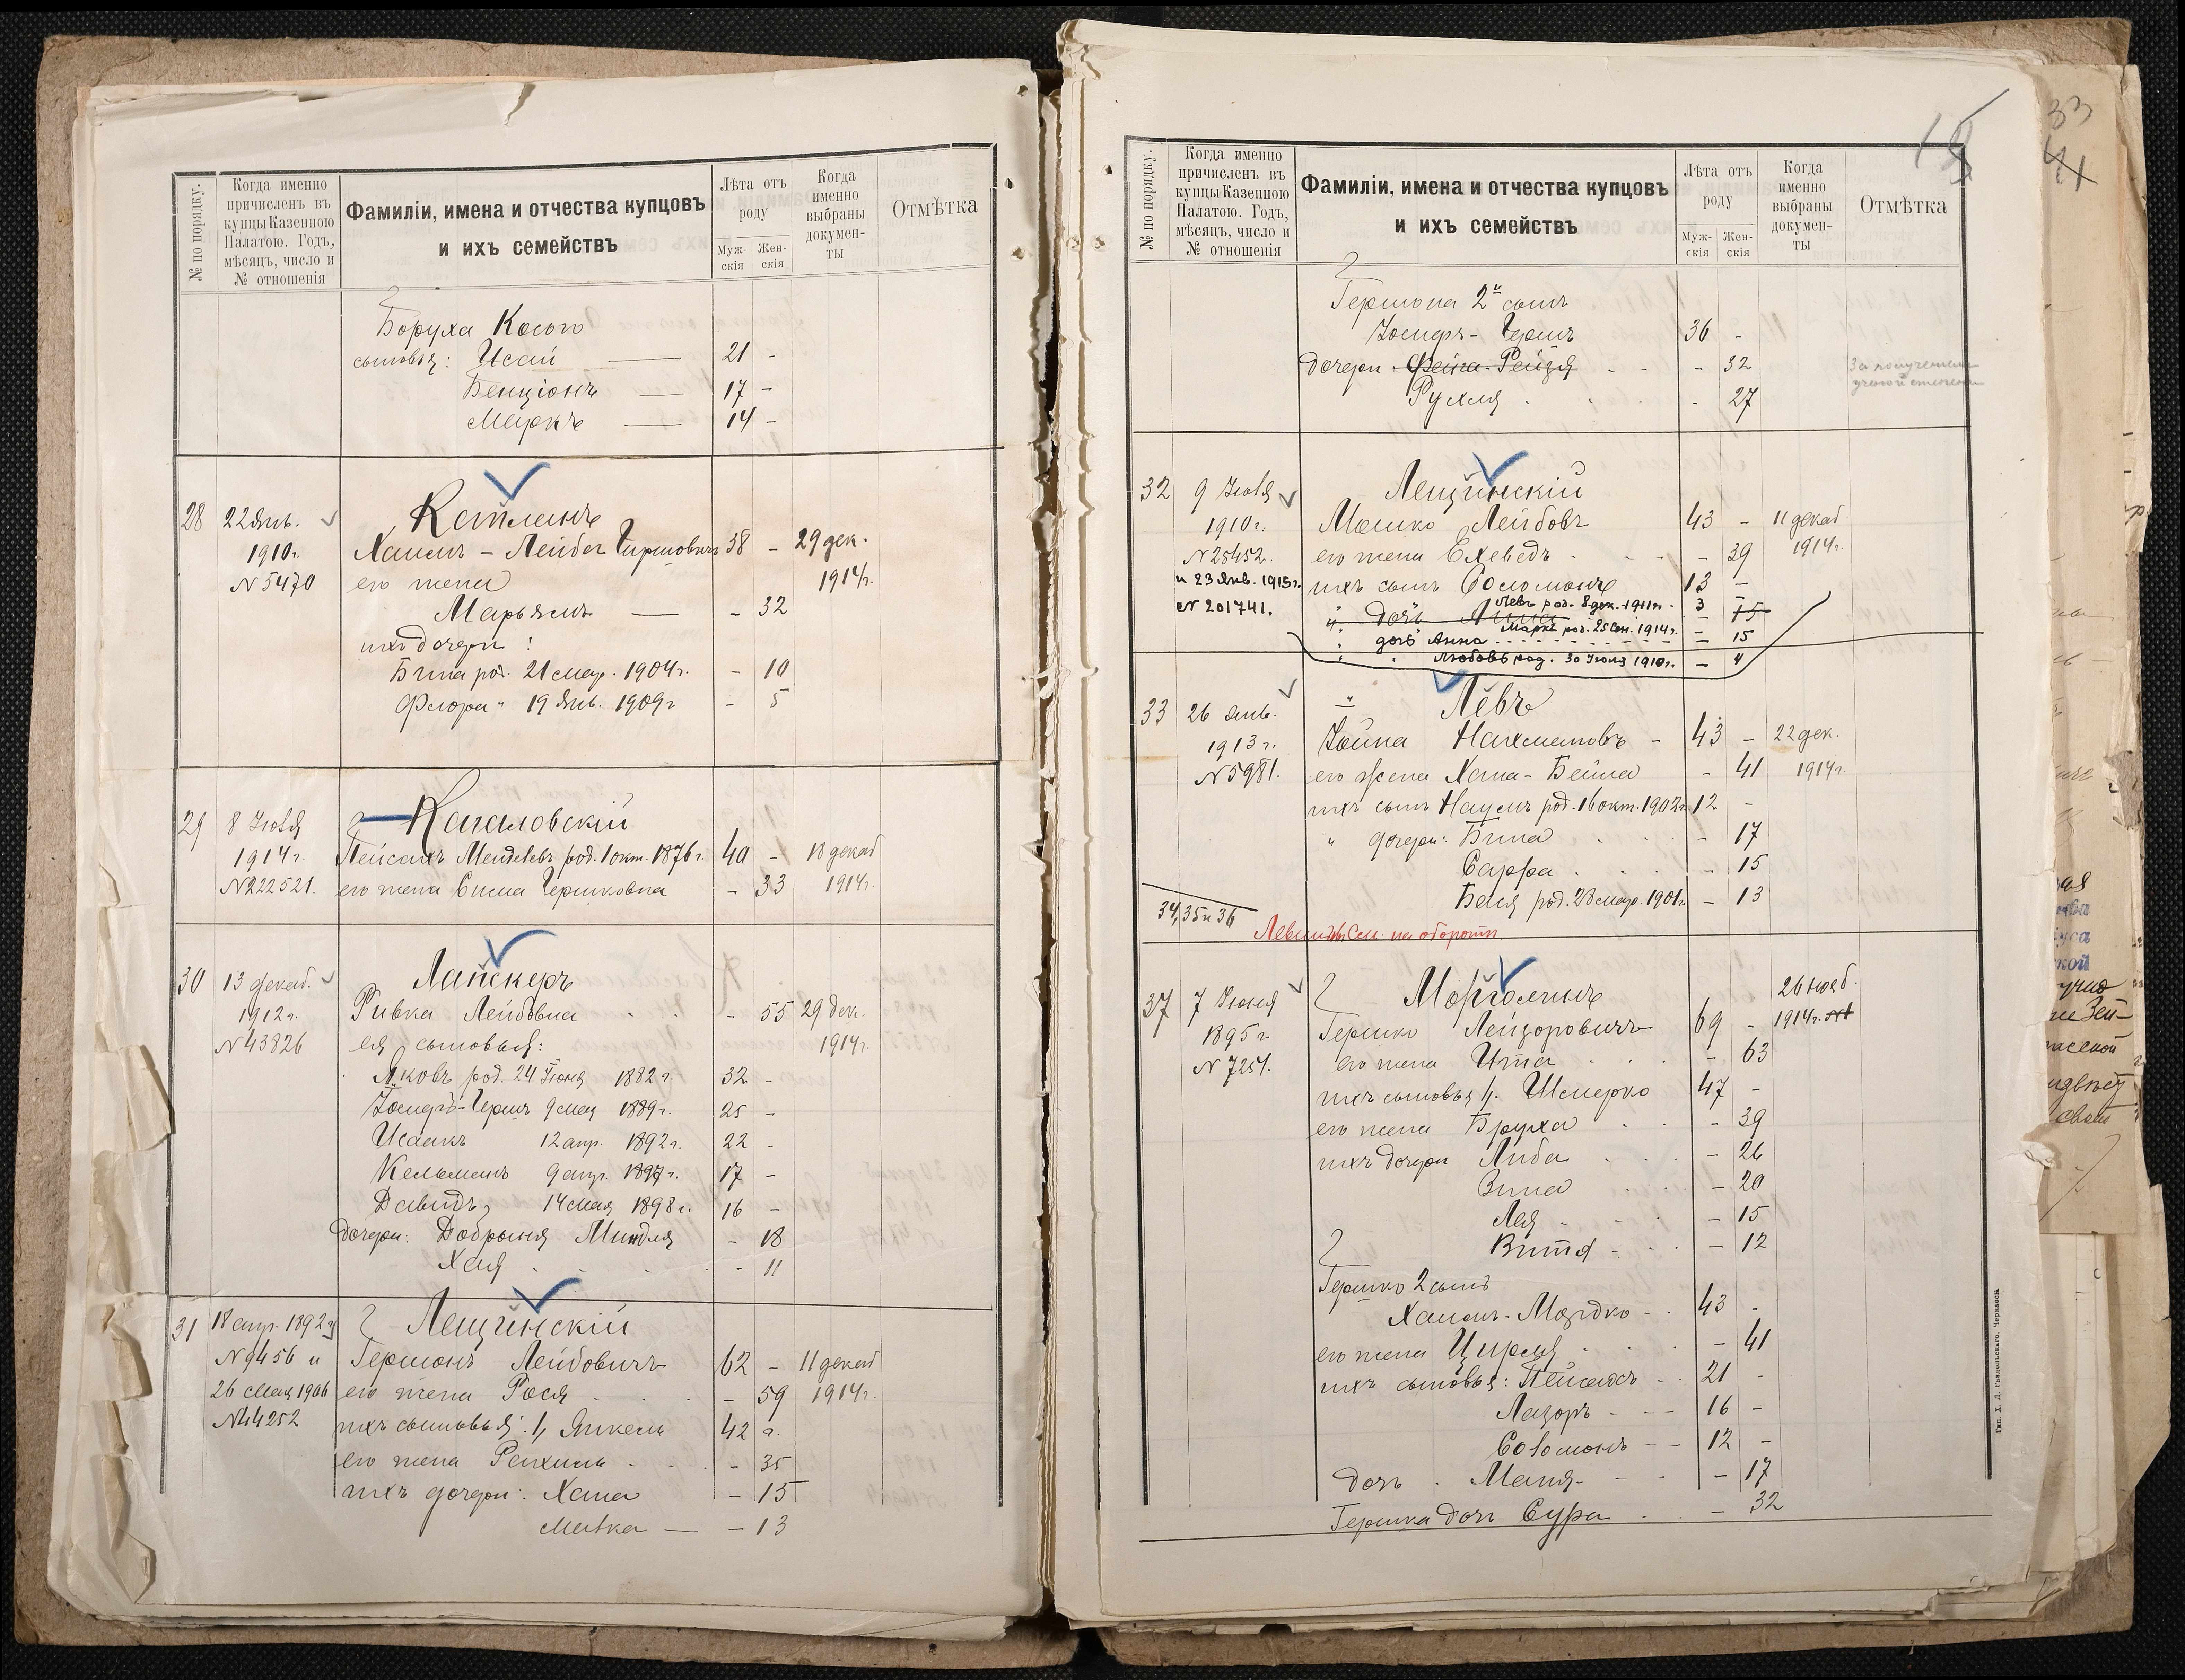 № по порядку.
Когда именно
причисленъ въ
купцы Казенною
Палатою. Годъ,
мѣсяцъ, число и
№ отношенія
Фамиліи, имена и отчества купцовъ
и ихъ семействъ
Лѣта отъ
роду
Муж-
скія
Жен-
скія
Когда
именно
выбраны
докумен-
ты
Отмѣтка
Боруха Косого
сыновья: Исай 21 -
Бенціонъ 17 -
Маркъ 14 -
28 22 Янв. Кацманъ
1910 г. Хаимъ-Лейба Гиршовичъ 38 - 29 дек.
N 5470 его жена 1914 г.
Марьямъ - 32
ихъ дочери:
Бина род. 21 мар. 1904 г. - 10
Флора " 19 Янв. 1909 г - 5
29 8 Іюля Кагаловскій
1914 г. Пейсахъ Менделевъ род. 1 окт. 1876 г. 40 - 18 декаб
N 222521. его жена Сима Гершковна - 33 1914 г.
30 13 декаб. Ланскеръ
1912 г. Ривка Лейбовна - 55 29 дек.
N 43826 ея сыновья: 1914 г.
Яковъ род. 24 Іюня 1882 г. 32 -
Іосифъ-Гершъ 9 мая 1889 г. 25 -
Исаакъ 12 апр. 1892 г. 22 -
Кельманъ 9 апр. 1897 г. 17 -
Давидъ 14 мая 1898 г. 16 -
дочери: Добрыня Миндля - 18
Хая - 11
31 18 апр. 1892 г Лещинскій
N 9456 и Гершонъ Лейбовичъ 62 - 11 декаб
26 мая 1906 его жена Рося - 59 1914 г.
N 44252 ихъ сыновья: 1, Янкель 42
его жена Рахиль - 35
ихъ дочери: Хана - 15
Малка - 13
№ по порядку.
Когда именно
причисленъ въ
купцы Казенною
Палатою. Годъ,
мѣсяцъ, число и
№ отношенія
Фамиліи, имена и отчества купцовъ
и ихъ семействъ
Лѣта отъ
роду
Муж-
скія
Жен-
скія
Когда
именно
выбраны
докумен-
ты
Отмѣтка
33
41
Гершона 2й сынъ
Іосифъ-Гершъ 36 -
дочери Фейга-Рейзя - 32 За полученіем
ученой степени
Рухля - 27
32 9 Іюля Лещинскій
1910 г. Мошко Лейбовъ 43 - 11 декаб.
N 25452. его жена Ехеведъ - 39 1914 г.
и 23 Янв. 1915 г. ихъ сынъ Соломонъ 13 -
N 201741. Левъ род. 8 дек. 1911 г. 3 -
" дочь Анна - 15
Маркъ род. 25 Сен. 1914 г.
дочь Анна - 15
" Любовь род. 30 Іюля 1910 г. - 4
33 26 Янв. Левъ
1913 г. Іойна Нахмановъ - 43 - 22 дек.
N 5981. его жена Хана-Бейла - 41 1914 г.
ихъ сынъ Наумъ род. 16 окт. 1902 г. 12 -
" дочери: Бина - 17
Сарра - 15
Бася род. 28 мар. 1901 г. - 13
34, 35 и 36
Левины См. на оборотѣ
37 7 Іюня Моргулинъ 26 нояб.
1895 г. Гершко Лейзоровичъ 69 - 1914 г.
N 7257. его жена Ита - 63
ихъ сыновья 1, Шмерко 47 -
его жена Бруха - 39
ихъ дочери Либа - 26
Зина - 20
Лея - 15
Витя - 12
Гершко 2 сынъ
Хаимъ-Мордко 43 -
его жена Цирля - 41
ихъ сыновья: Пейсахъ 21 -
Лазорь 16 -
Соломонъ 12 -
дочь Маня - 17
Гершка дочь Сура - 32
Тип. Х. Д. Гавлольскаго. Черкассы